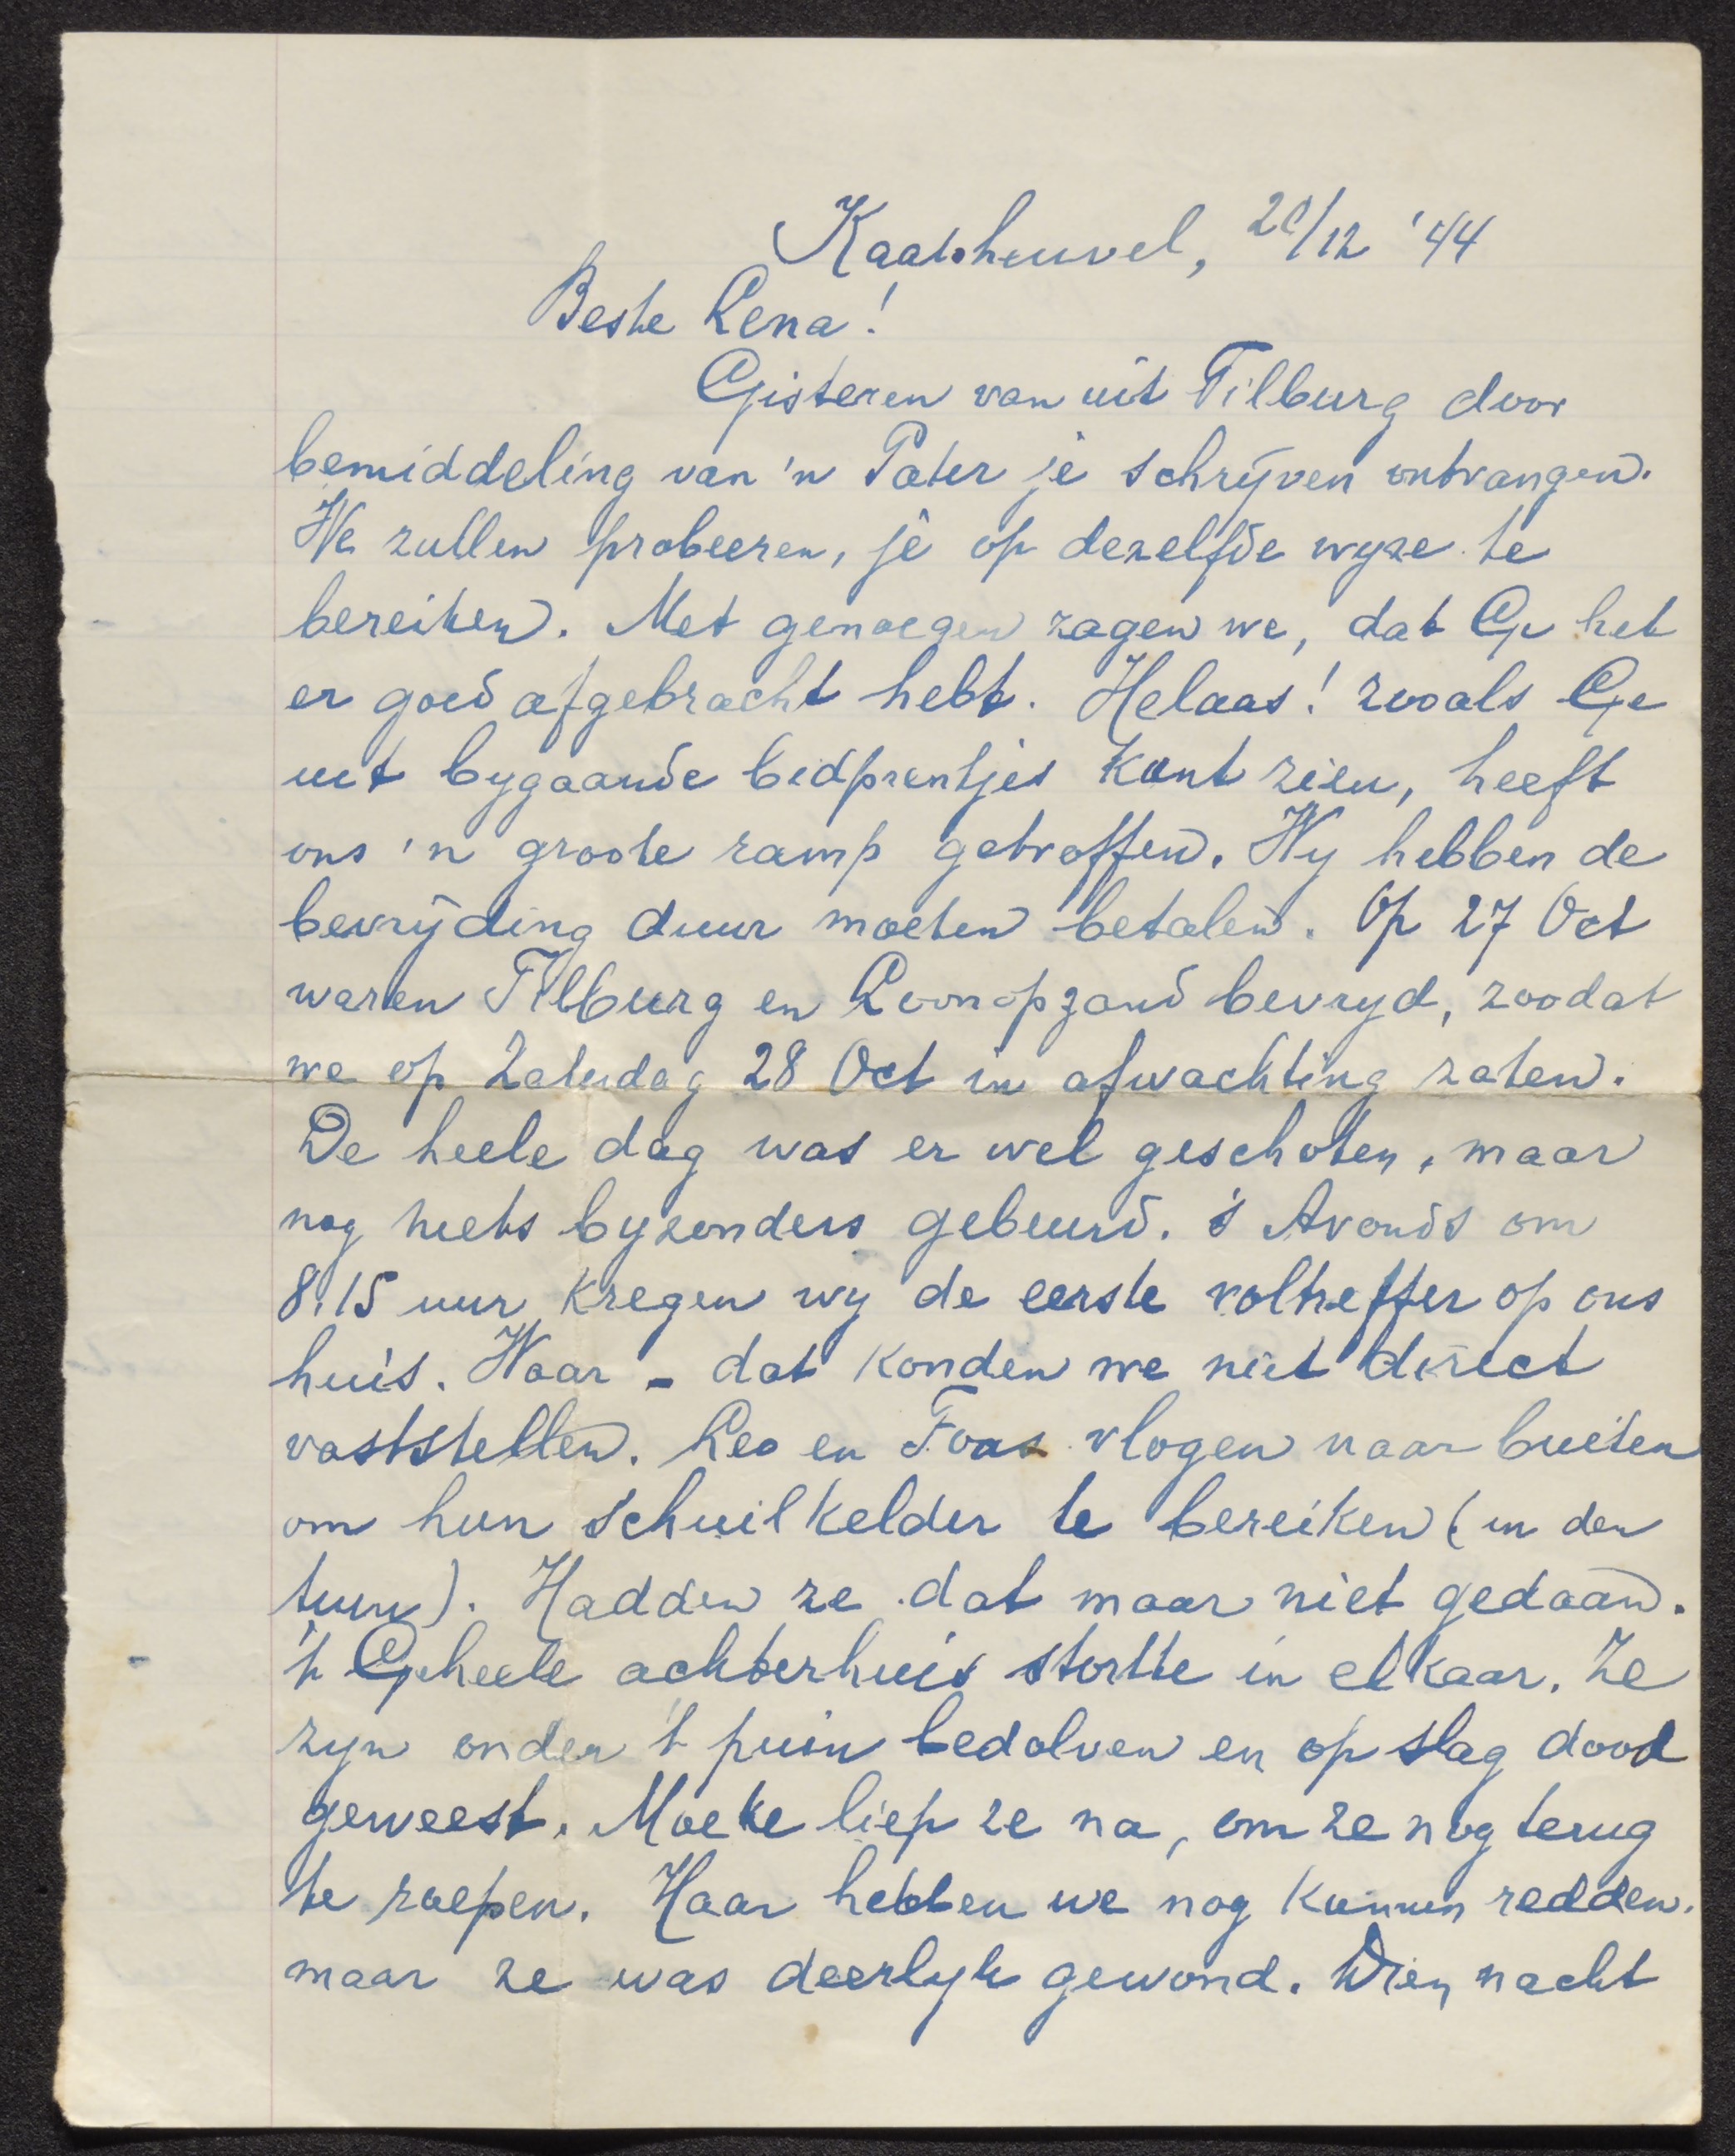 Kaatsheuvel, 20/12 '44
Beste Lena!
Gisteren van uit Tilburg door
bemiddeling van 'n Pater je schrijven ontvangen.
We zullen probeeren, je op dezelfde wyze te
bereiken. Met genoegen zagen we, dat Ge het
er goed afgebracht hebt. Helaas! zooals Ge
uit bygaande bidprentjes kunt zien, heeft
ons 'n groote ramp getroffen. Wy hebben de
bevrijding duur moeten betalen. Op 27 Oct
waren Tilburg en Loonopzand bevryd, zoodat
we op Zaterdag 28 Oct in afwachting zaten.
De heele dag was er wel geschoten, maar
nog niets byzonders gebeurd. 's Avonds om
8.15 uur kregen wy de eerste voltreffer op ons
huis. Waar - dat konden we niet direct
vaststellen. Leo en Toos vlogen naar buiten
om hun schuilkelder te bereiken (in den
tuin). Hadden ze dat maar niet gedaan.
't Geheele achterhuis stortte in elkaar. Ze
zyn onder 't puin bedolven en op slag dood
geweest. Moeke liep ze na, om ze nog terug
te roepen. Haar hebben we nog kunnen redden.
maar ze was deerlyk gewond. Dien nacht